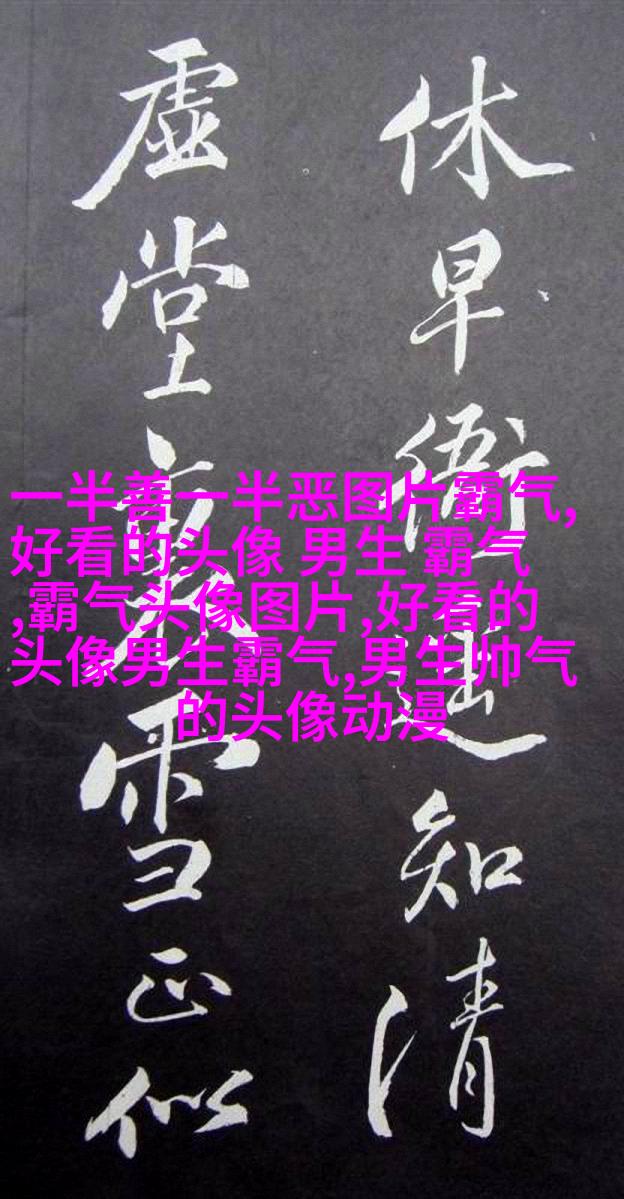 休早衙知清
虚堂雪正似
一半善一半恶图片霸气,
好看的头像 男生 霸气
,霸气头像图片,好看的
头像男生霸气,男生帅气
的头像动漫